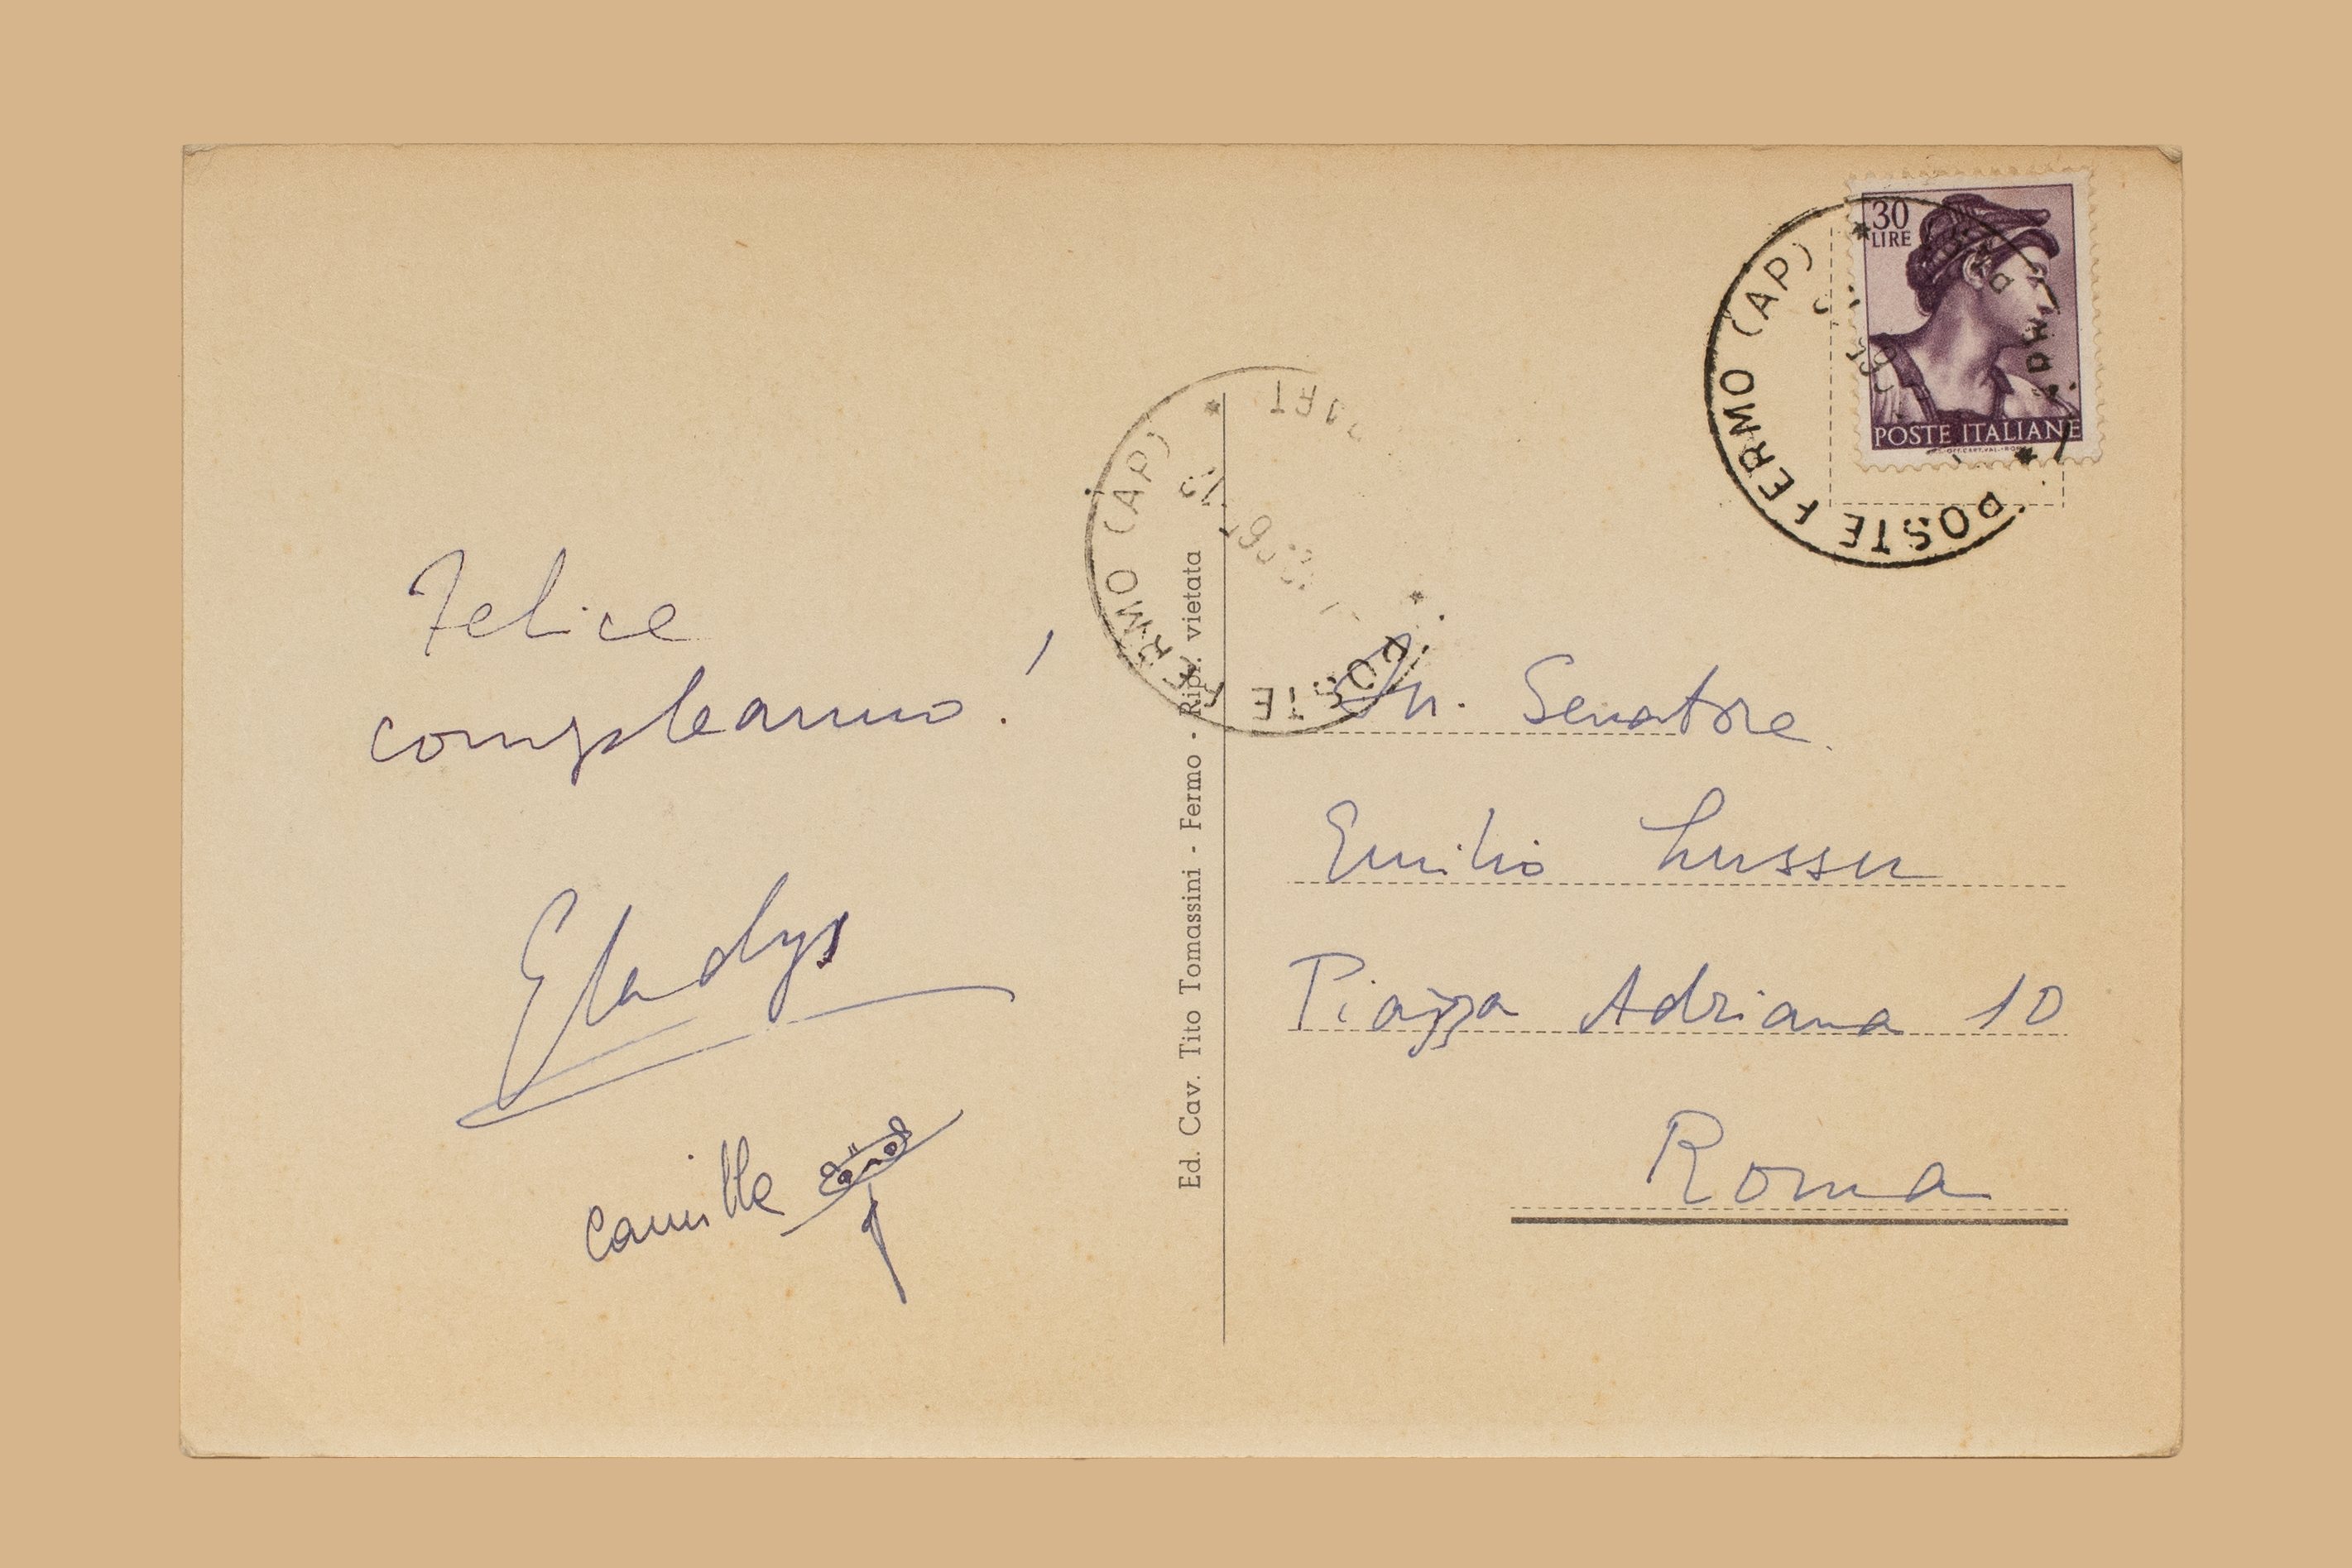 Felice
compleanno!
Gladys
Camilla
Ed. Cav. Tito Tomassini - Fermo - Ripr. vietata
POSTE FERMO (AP)
POSTE FERMO (AP)
30
LIRE
POSTE ITALIANE
Senatore
Emilio Lussu
Piazza Adriana 10
Roma